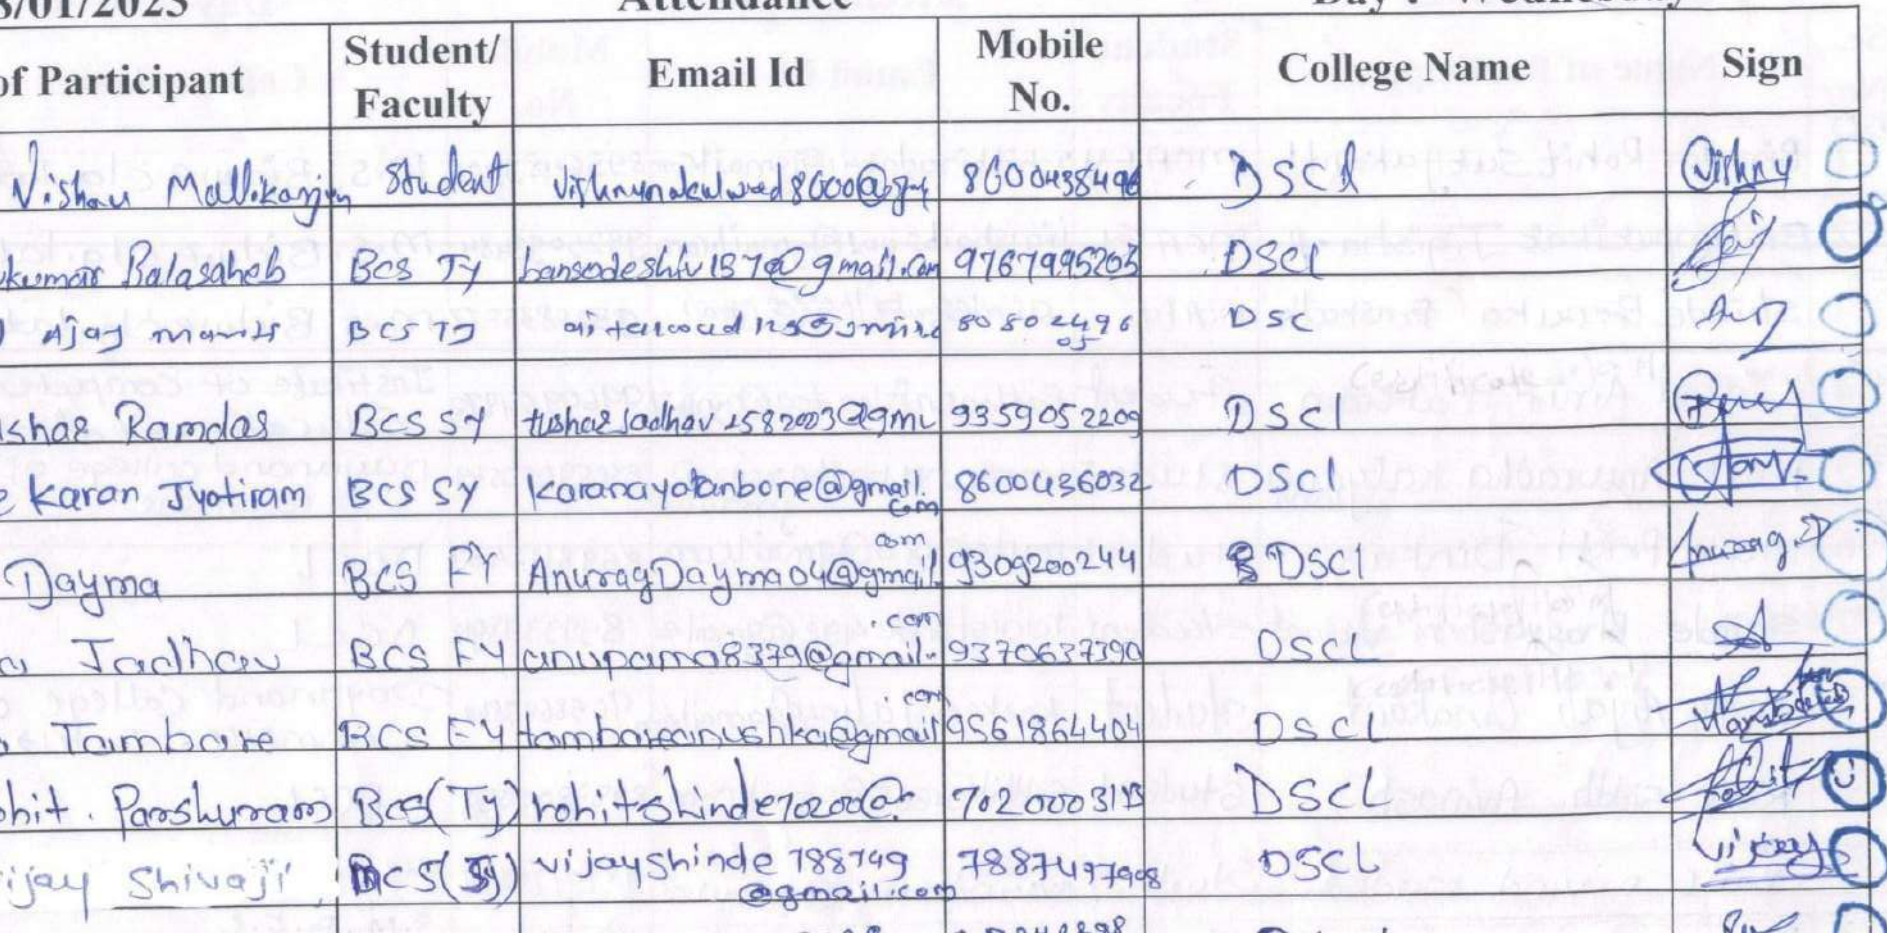 8/01/2023 Attendance Day : Wednesday
of Participant Student/ Faculty Email Id Mobile No. College Name Sign
Vishnu Mallikarjun Student 8600438496 DSCL Vishnu
kumar Balasaheb BCS TY bansodeshiv157@gmail.com 9767995205 DSCL
Vijay BCS TY 80802496 05 DSCL
ushar Ramdas BCS SY tusharjadhav2582003@gmail 9359052209 DSCL
e Karan Jyotiram BCS SY @gmail.com 8600436032 DSCL
Dayma BCS FY AnuragDayma04@gmail.com 9309200244 DSCL Anurag.D
a Jadhav BCS FY anupama8379@gmail.com 9370637390 DSCL
a Tambare BCS FY tambareanushka@gmail.com 9561864404 DSCL
ohit. Parshuram BCS(TY) rohitshinde70200@. DSCL
vijay Shivaji BCS(TY) vijayshinde788749@gmail.com 7887497908 DSCL vijay